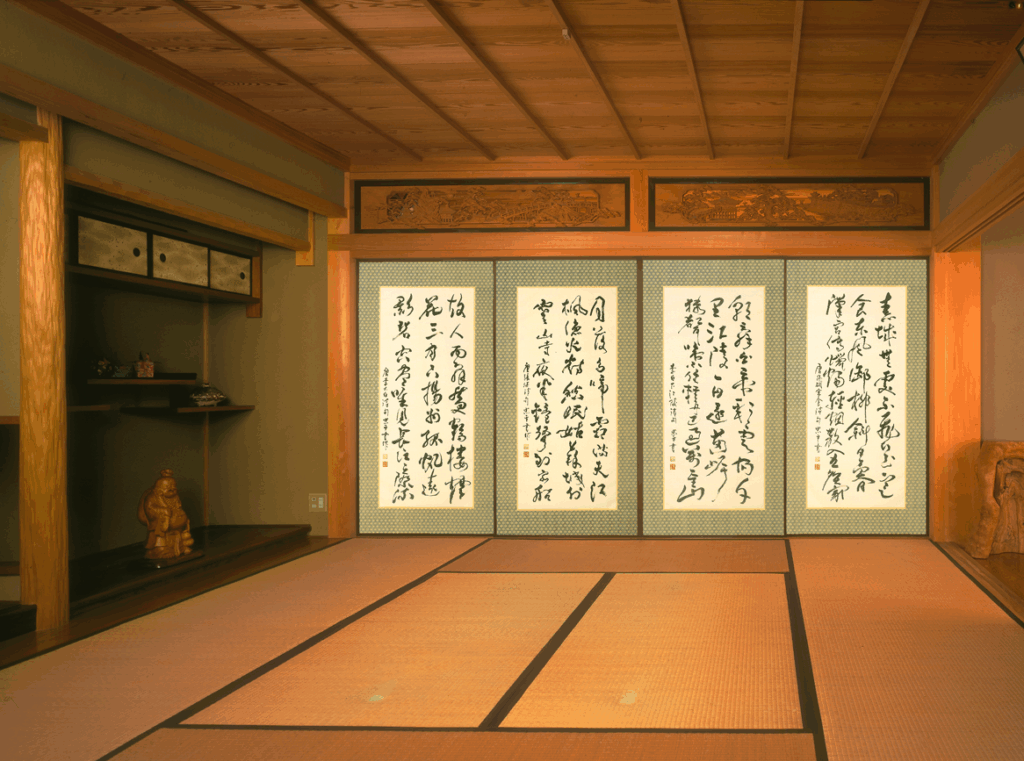 春城無處不飛花寒
食東風御柳斜日暮
漢宮傳蠟燭輕煙散入五侯家
朝辭白帝彩雲間千
里江陵一日還兩岸
猿聲啼不住輕舟已過萬重山
李白下江陵詩句
月落烏啼霜滿天江
楓漁火對愁眠姑蘇城外
寒山寺夜半鐘聲到客船
唐張繼詩句
故人西辭黃鶴樓煙
花三月下揚州孤帆遠
影碧空盡唯見長江天際流
唐李白詩句